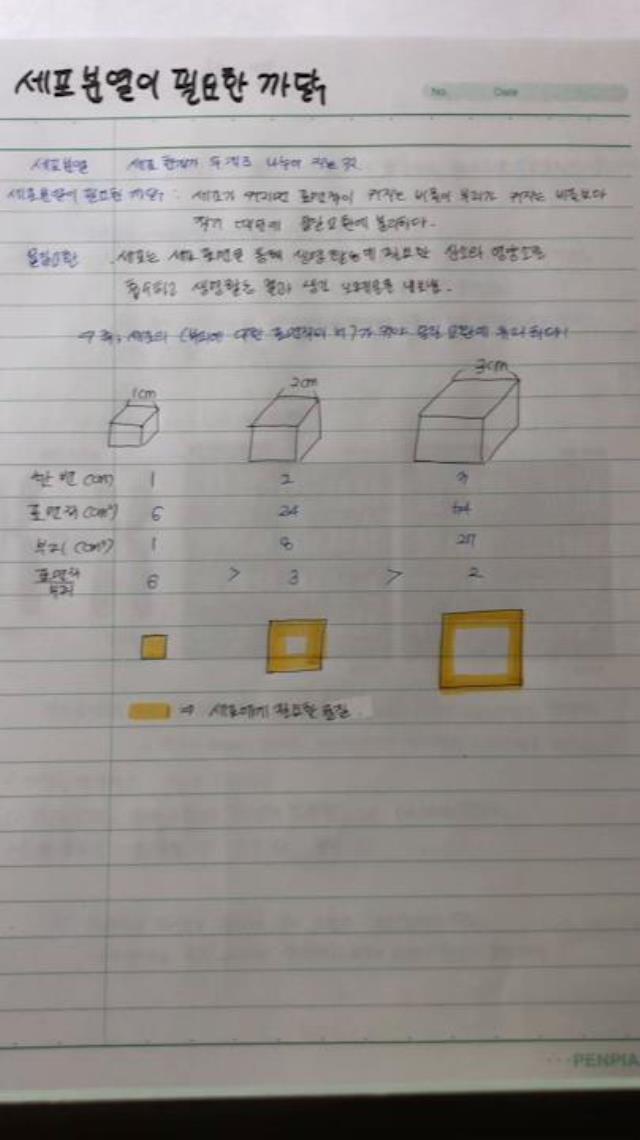 세포분열이 필요한 까닭
No. Date
세포분열 세포 한개가 두개로 나누어 지는 것
세포분열이 필요한 까닭 : 세포가 커지면 표면적이 커지는 비율이 부피가 커지는 비율보다
작기 때문에 물질교환에 불리하다.
물질교환 세포는 세포 표면을 통해 생명활동에 필요한 산소와 영양소를
흡수하고 생명활동 결과 생긴 노폐물을 내보냄.
⇒ 즉, 세포의 (부피에 대한 표면적의 비)가 커야 물질 교환에 유리하다!
1cm 2cm 3cm
한 변 (cm) 1 2 3
표면적 (cm²) 6 24 54
부피 (cm³) 1 8 27
표면적
부피 6 > 3 > 2
⇒ 세포에게 필요한 물질.
PENPIA